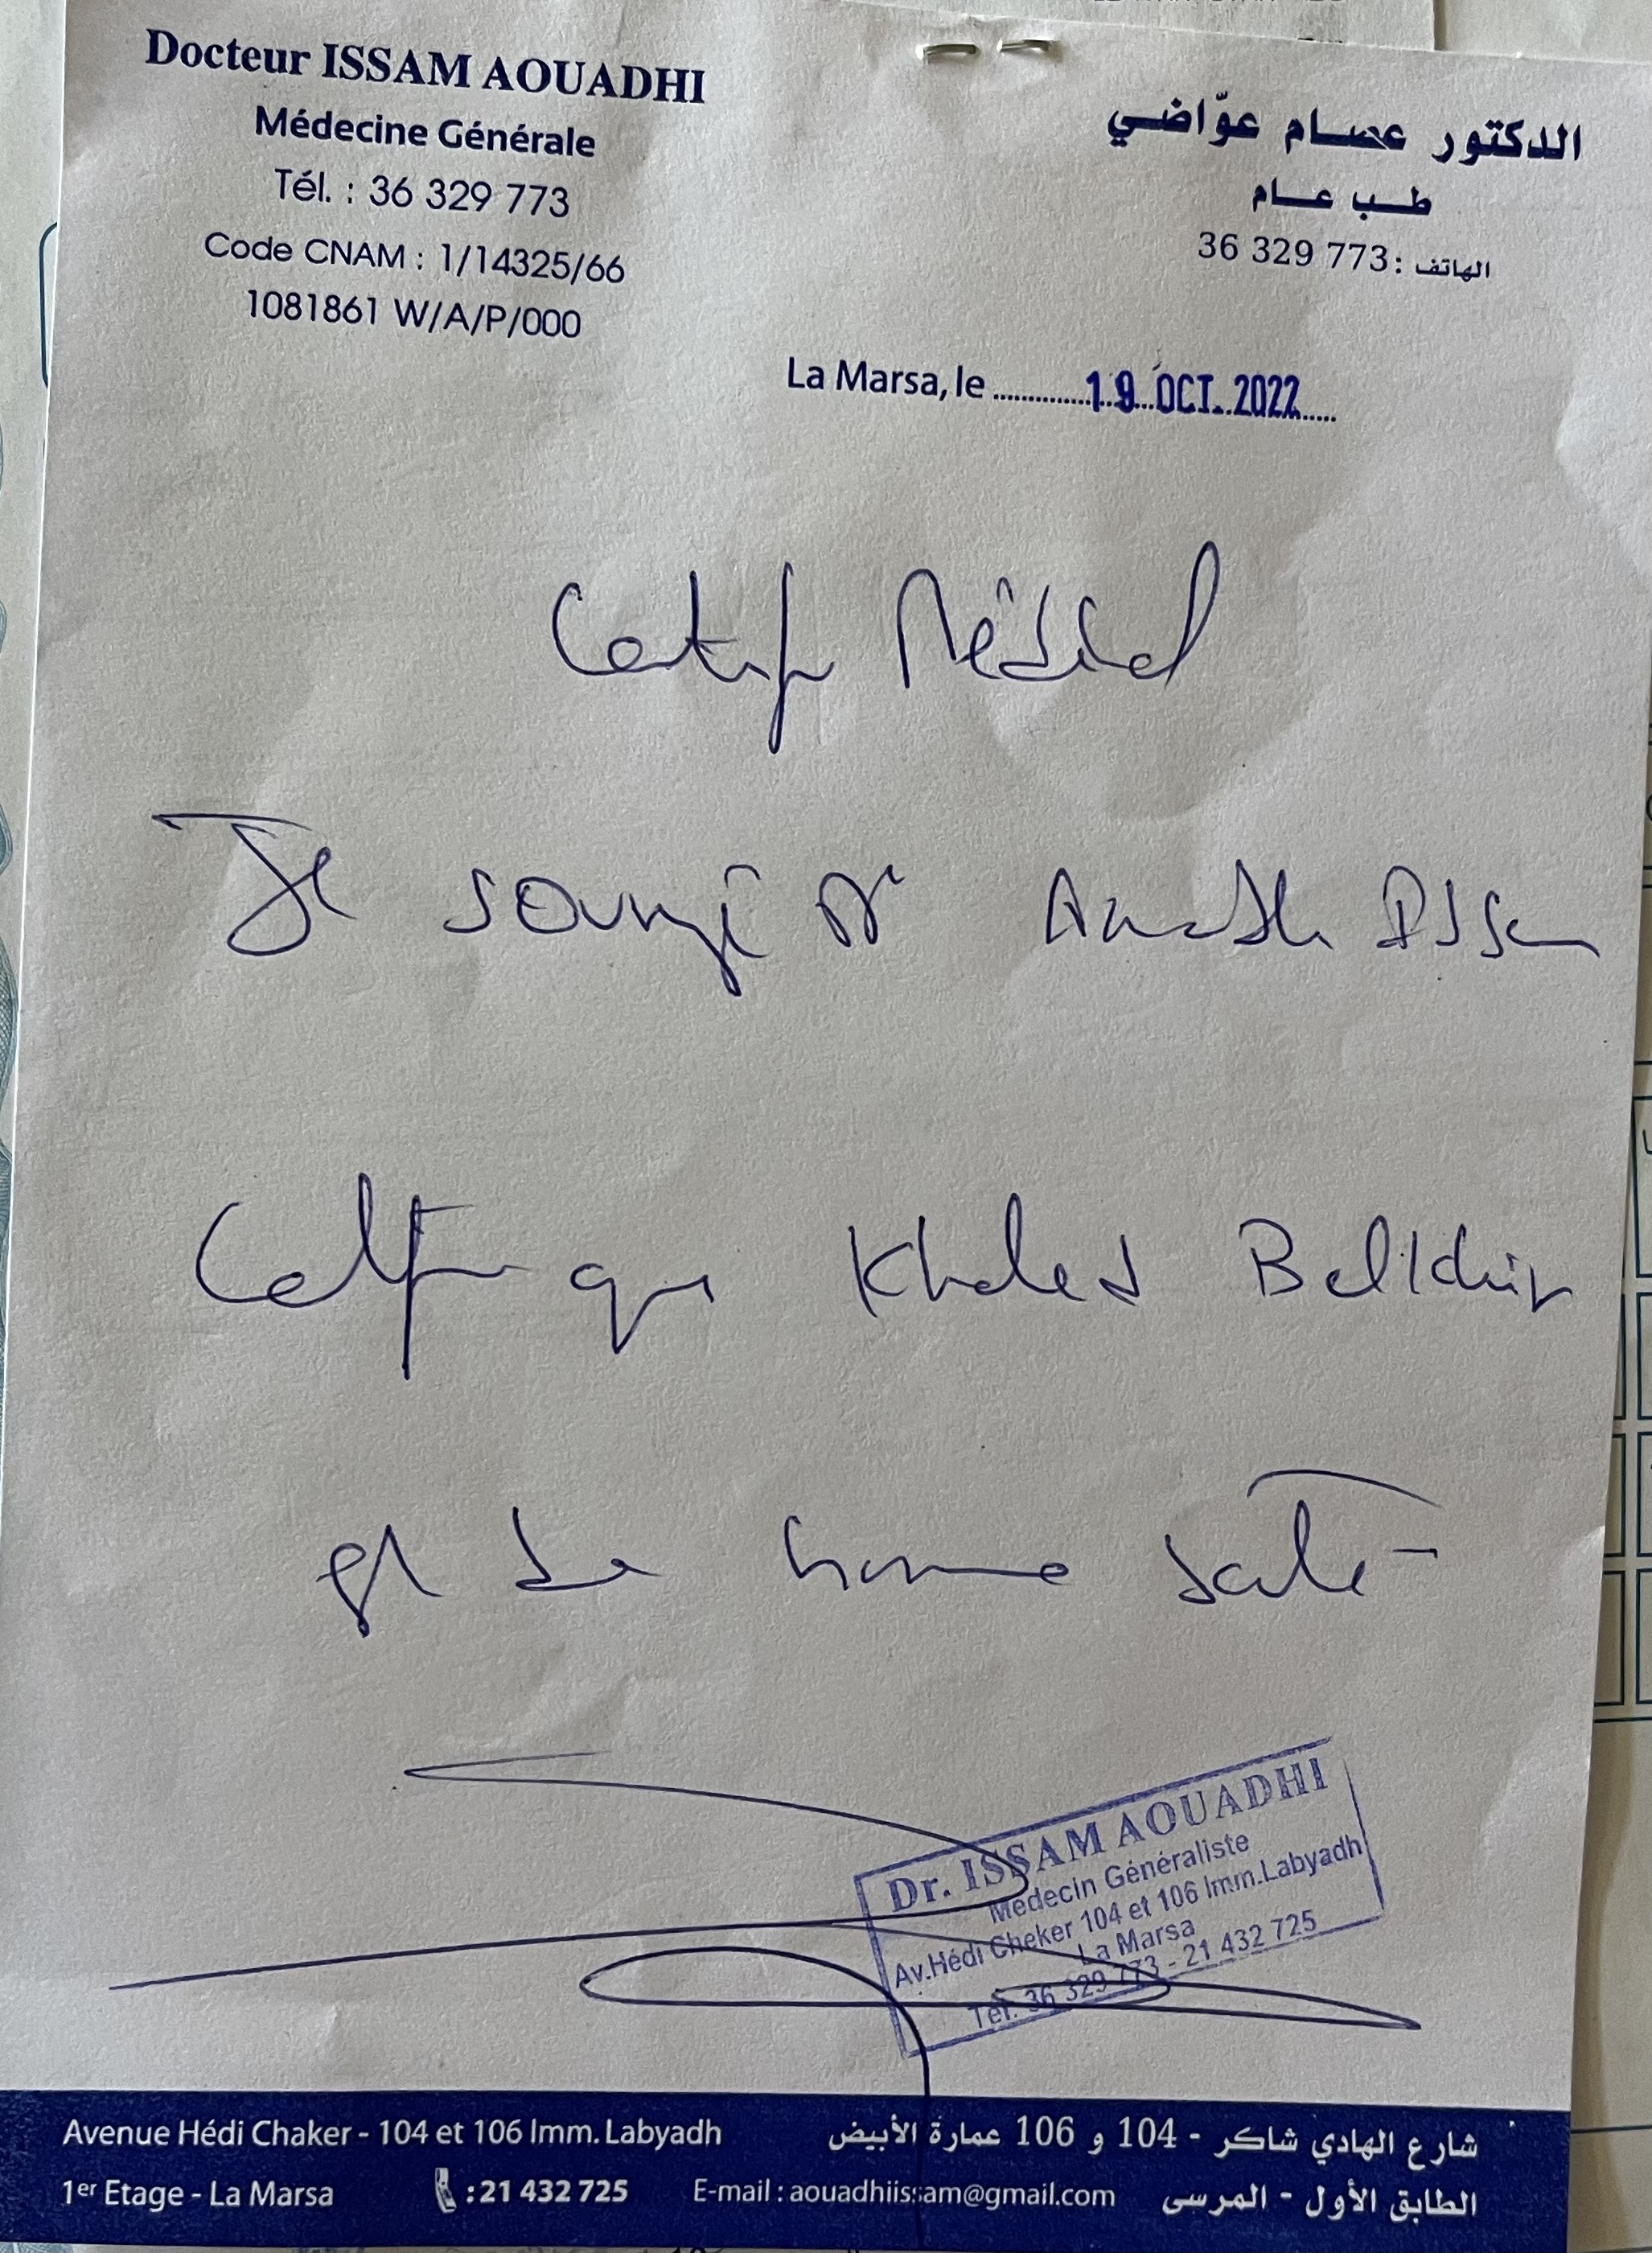 Docteur ISSAM AOUADHI
Médecine Générale
Tél. : 36 329 773
Code CNAM : 1/14325/66
1081861 W/A/P/000
الدكتور عصام عوّاضي
طب عام
الهاتف : 773 329 36
La Marsa, le 19 OCT. 2022
Certif Médical
Je sousigné Dr Aouadhi Issam
Certifie que Khaled
est de bonne santé
Dr. ISSAM AOUADHI
Médecin Généraliste
Av.Hédi Cheker 104 et 106 Imm.Labyadh
La Marsa
Tél. 36 329 773 - 21 432 725
Avenue Hédi Chaker - 104 et 106 Imm. Labyadh
1er Etage - La Marsa : 21 432 725 E-mail : aouadhiissam@gmail.com
شارع الهادي شاكر - 104 و 106 عمارة الأبيض
الطابق الأول - المرسى